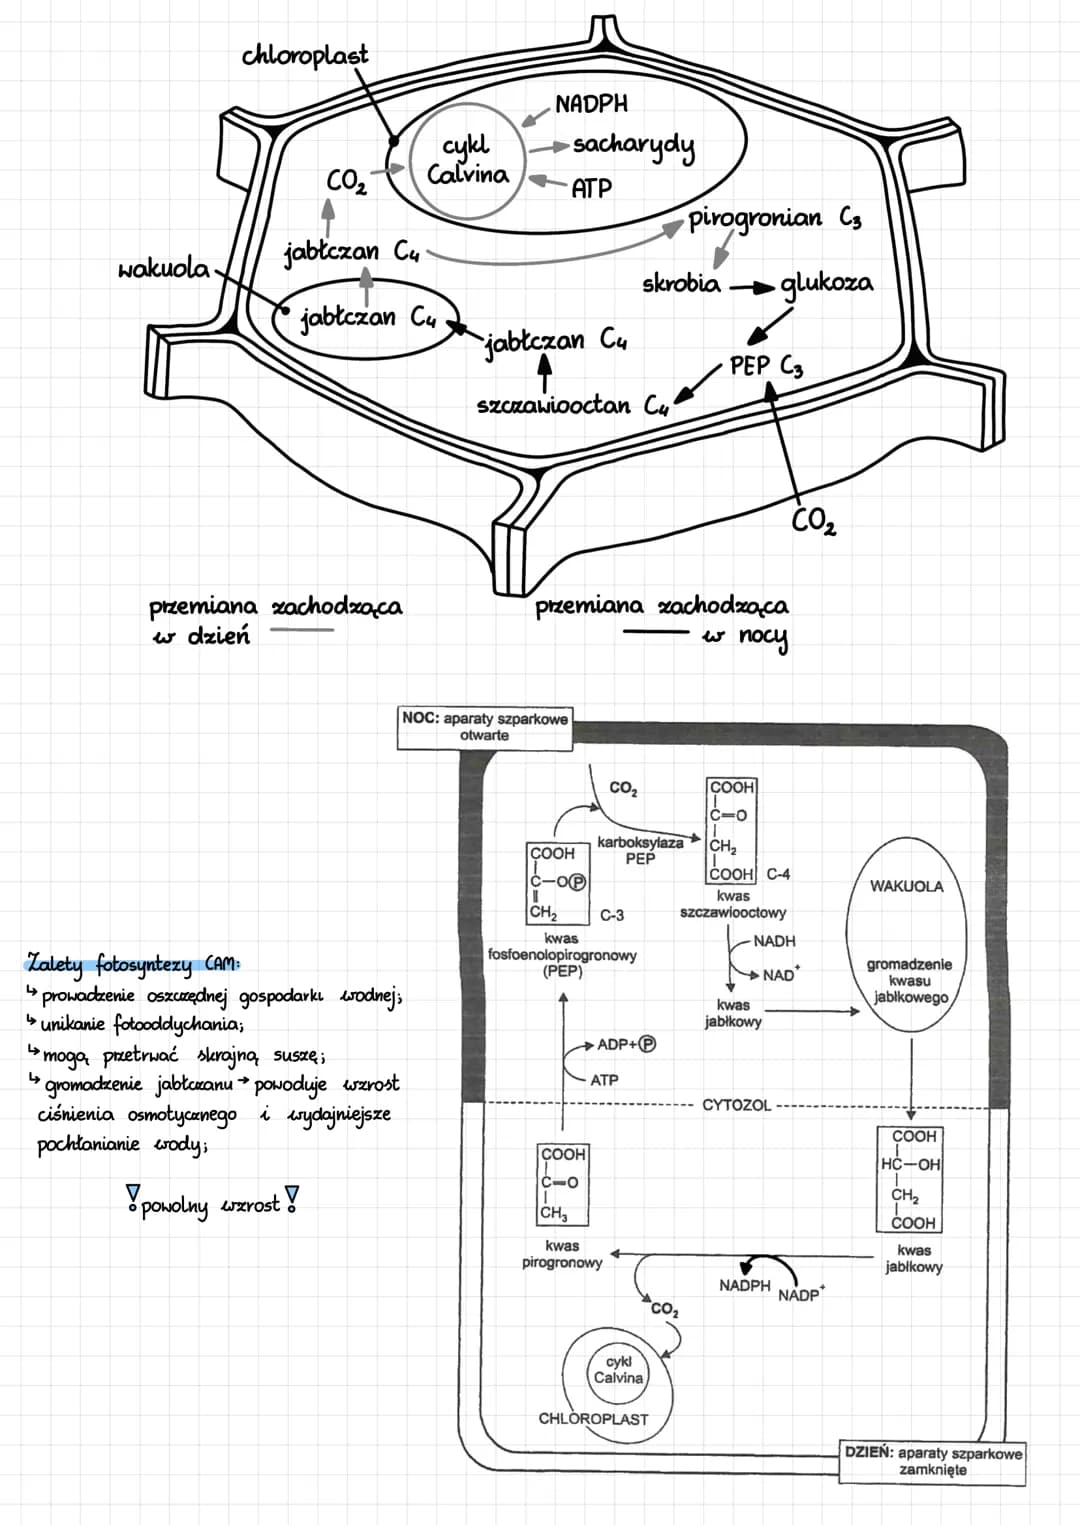 chloroplast
NADPH
cykl
Calvina
sacharydy
ATP
CO₂
pirogronian C₃
jabłczan C₄
wakuola
skrobia
glukoza
jabłczan C₄
jabłczan C₄
PEP C₃
szczawiooctan C₄
CO₂
przemiana zachodząca
w dzień
przemiana zachodząca
w nocy
NOC: aparaty szparkowe
otwarte
CO₂
karboksylaza
PEP
COOH
C=O
CH₂
COOH
C-4
kwas
szczawiooctowy
COOH
C-OⓅ
CH₂
C-3
kwas
fosfoenolopirogronowy
(PEP)
NADH
NAD⁺
kwas
jabłkowy
WAKUOLA
gromadzenie
kwasu
jabłkowego
ADP+Ⓟ
ATP
CYTOZOL
Zalety fotosyntezy CAM:
↳ prowadzenie oszczędnej gospodarki wodnej;
↳ unikanie fotooddychania;
↳ mogą przetrwać skrajną suszę;
↳ gromadzenie jabłczanu → powoduje wzrost
ciśnienia osmotycznego i wydajniejsze
pochłanianie wody;
! powolny wzrost !
COOH
C=O
CH₃
kwas
pirogronowy
COOH
HC-OH
CH₂
COOH
kwas
jabłkowy
NADPH
NADP⁺
CO₂
cykl
Calvina
CHLOROPLAST
DZIEŃ: aparaty szparkowe
zamknięte